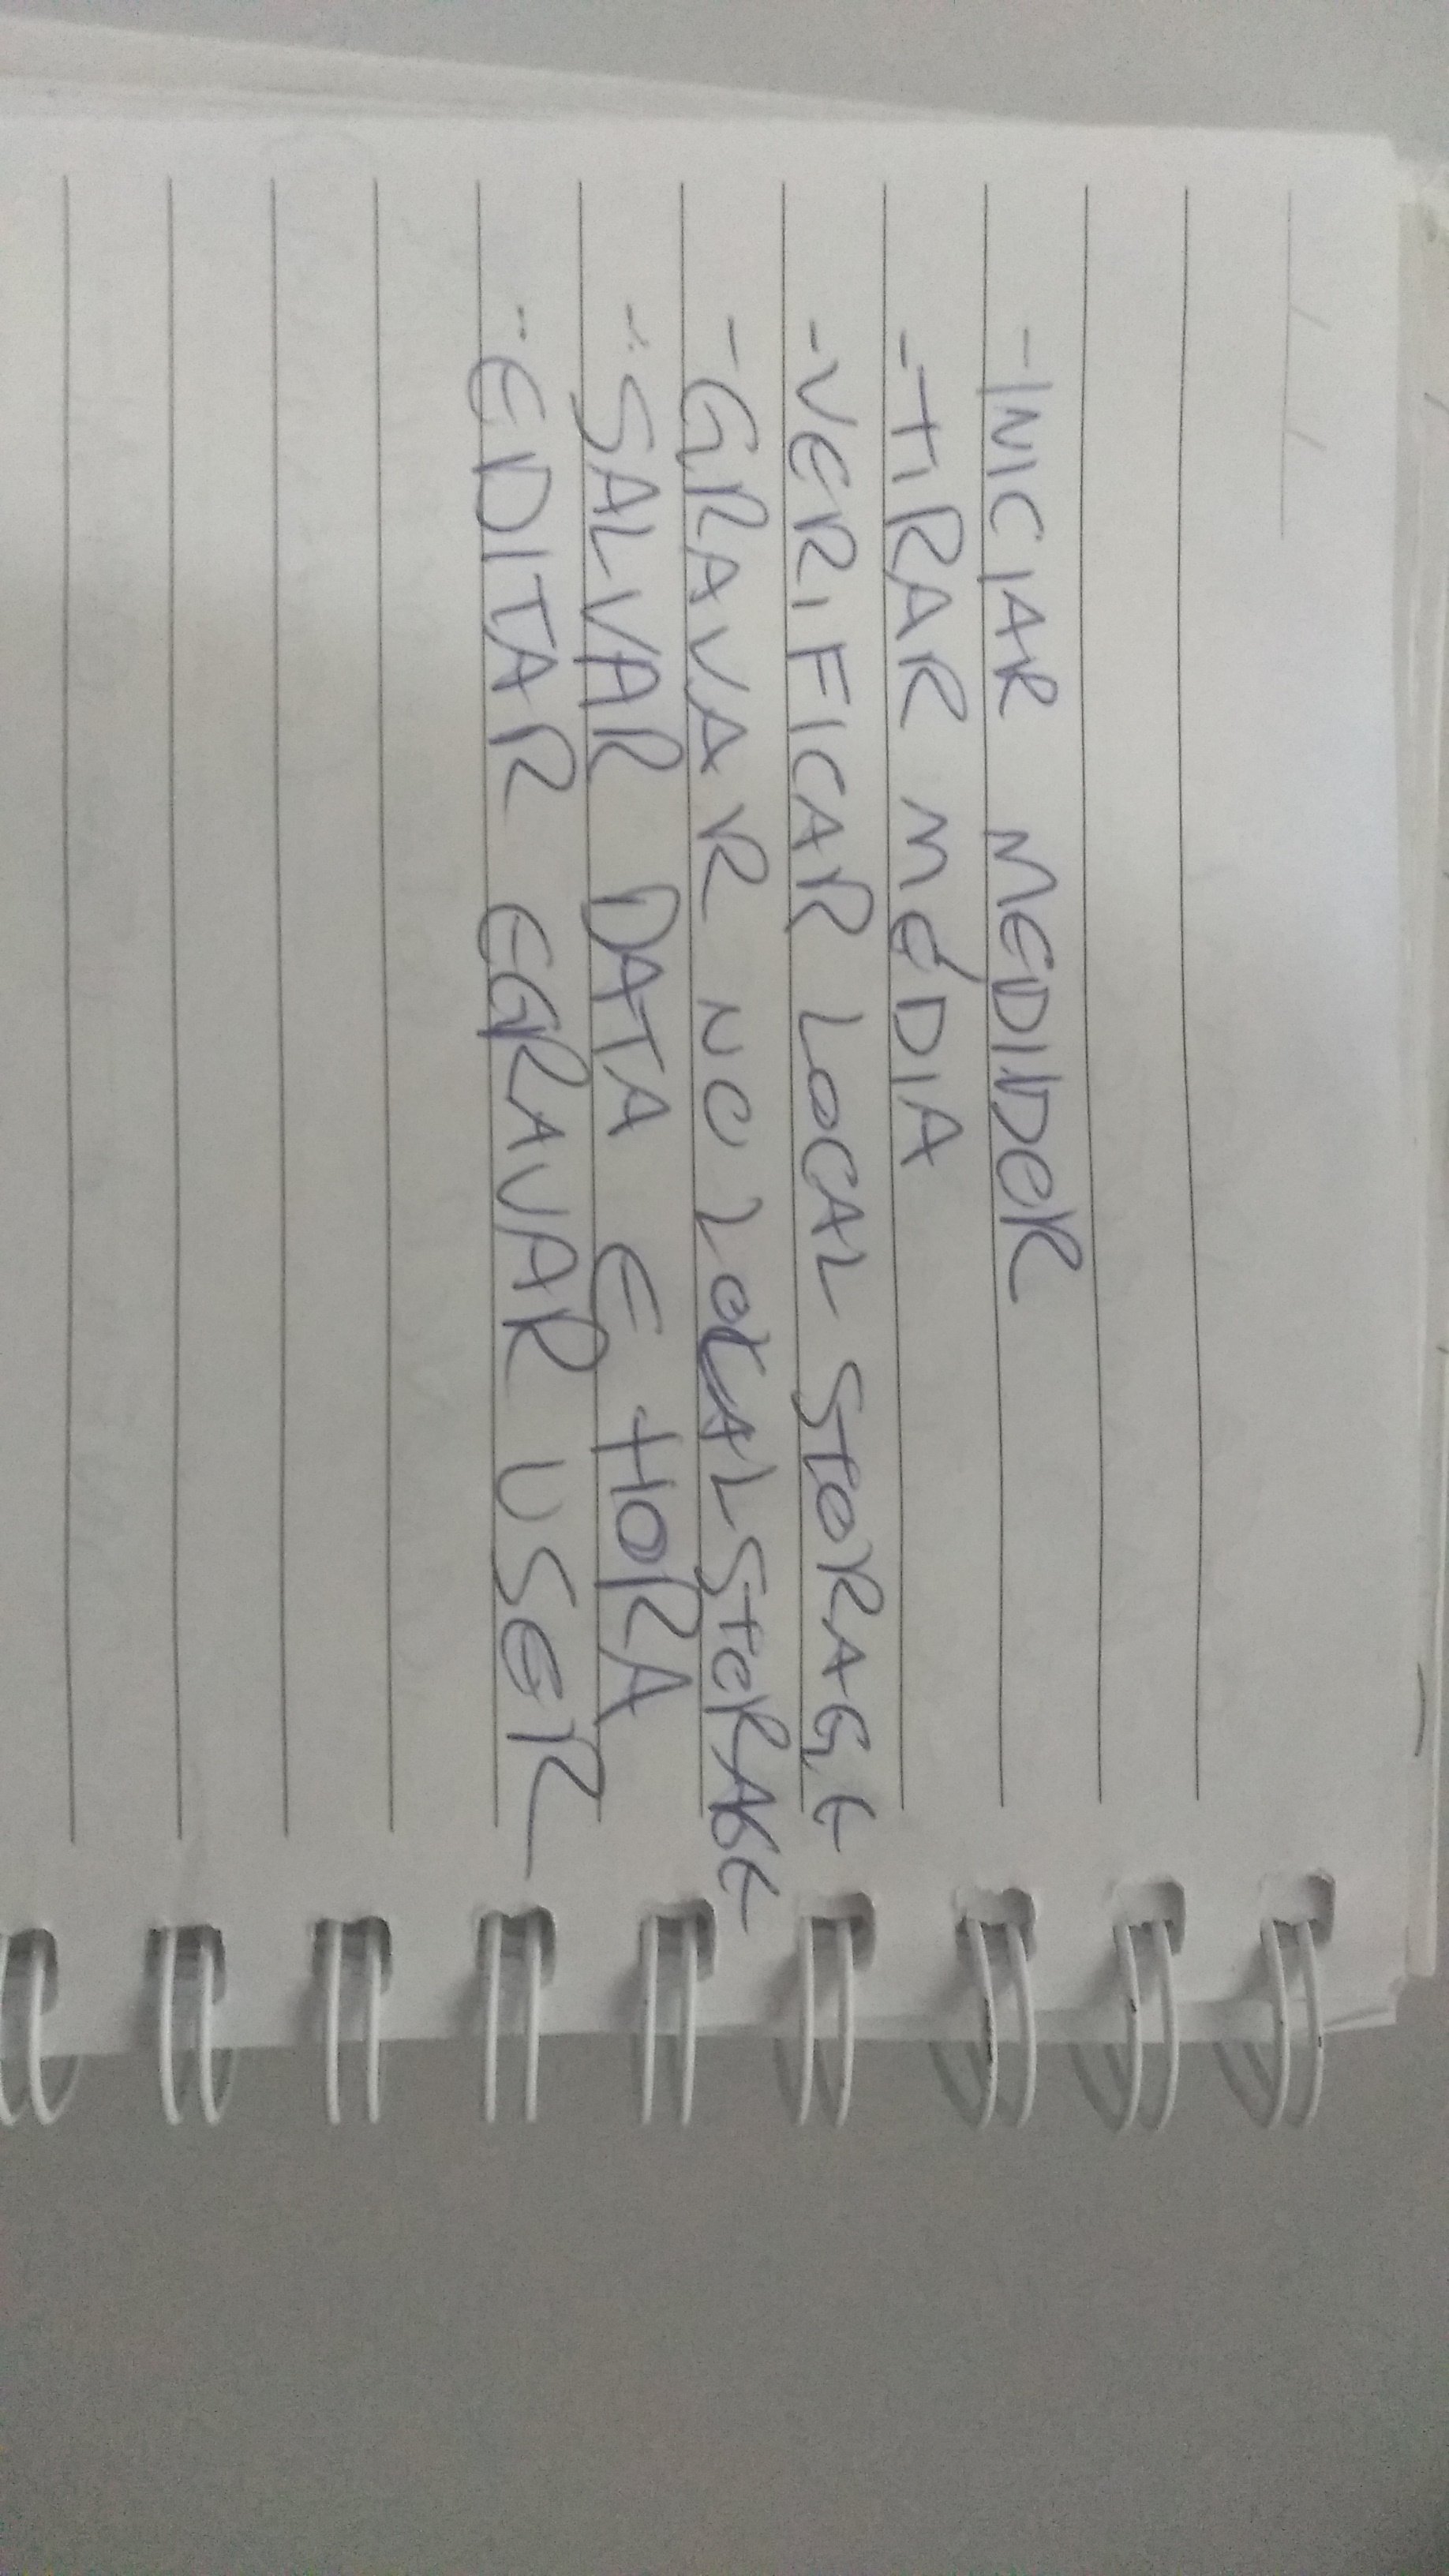 -INICIAR MEDIDOR
-TIRAR MÉDIA
-VERIFICAR LOCAL STORAGE
-GRAVAR NO LOCALSTORAGE
-SALVAR DATA E HORA
-EDITAR EGRAVAR USER